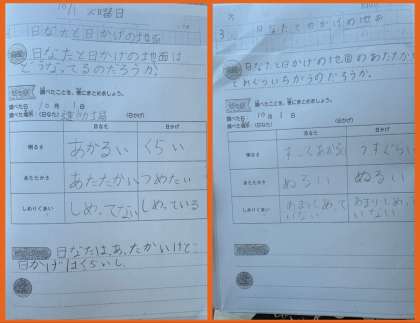 10/1 火曜日
日なたと日かげの地面
日なたと日かげの地面は
どうなってるのだろうか。
調べたことを、表にまとめましょう。
調べた日 10月 1日
調べた場所 (日なた) (日かげ)
日なた 日かげ
明るさ あかるい くらい
あたたかさ あたたかい つめたい
しめりぐあい しめってない しめっている
日なたは、あったかいけど
日かげはくらいし、
3
日なたとかげの地面
日なたと日かげの地面のあたたかさは
どれぐらいちがうのだろうか。
調べたことを、表にまとめましょう。
調べた日 10月 1日
調べた場所 (日なた) (日かげ)
日なた 日かげ
明るさ すっごくあかるい うすぐらい
あたたかさ ぬるい ぬるい
しめりぐあい あまりしめっていない あまりしめっていない